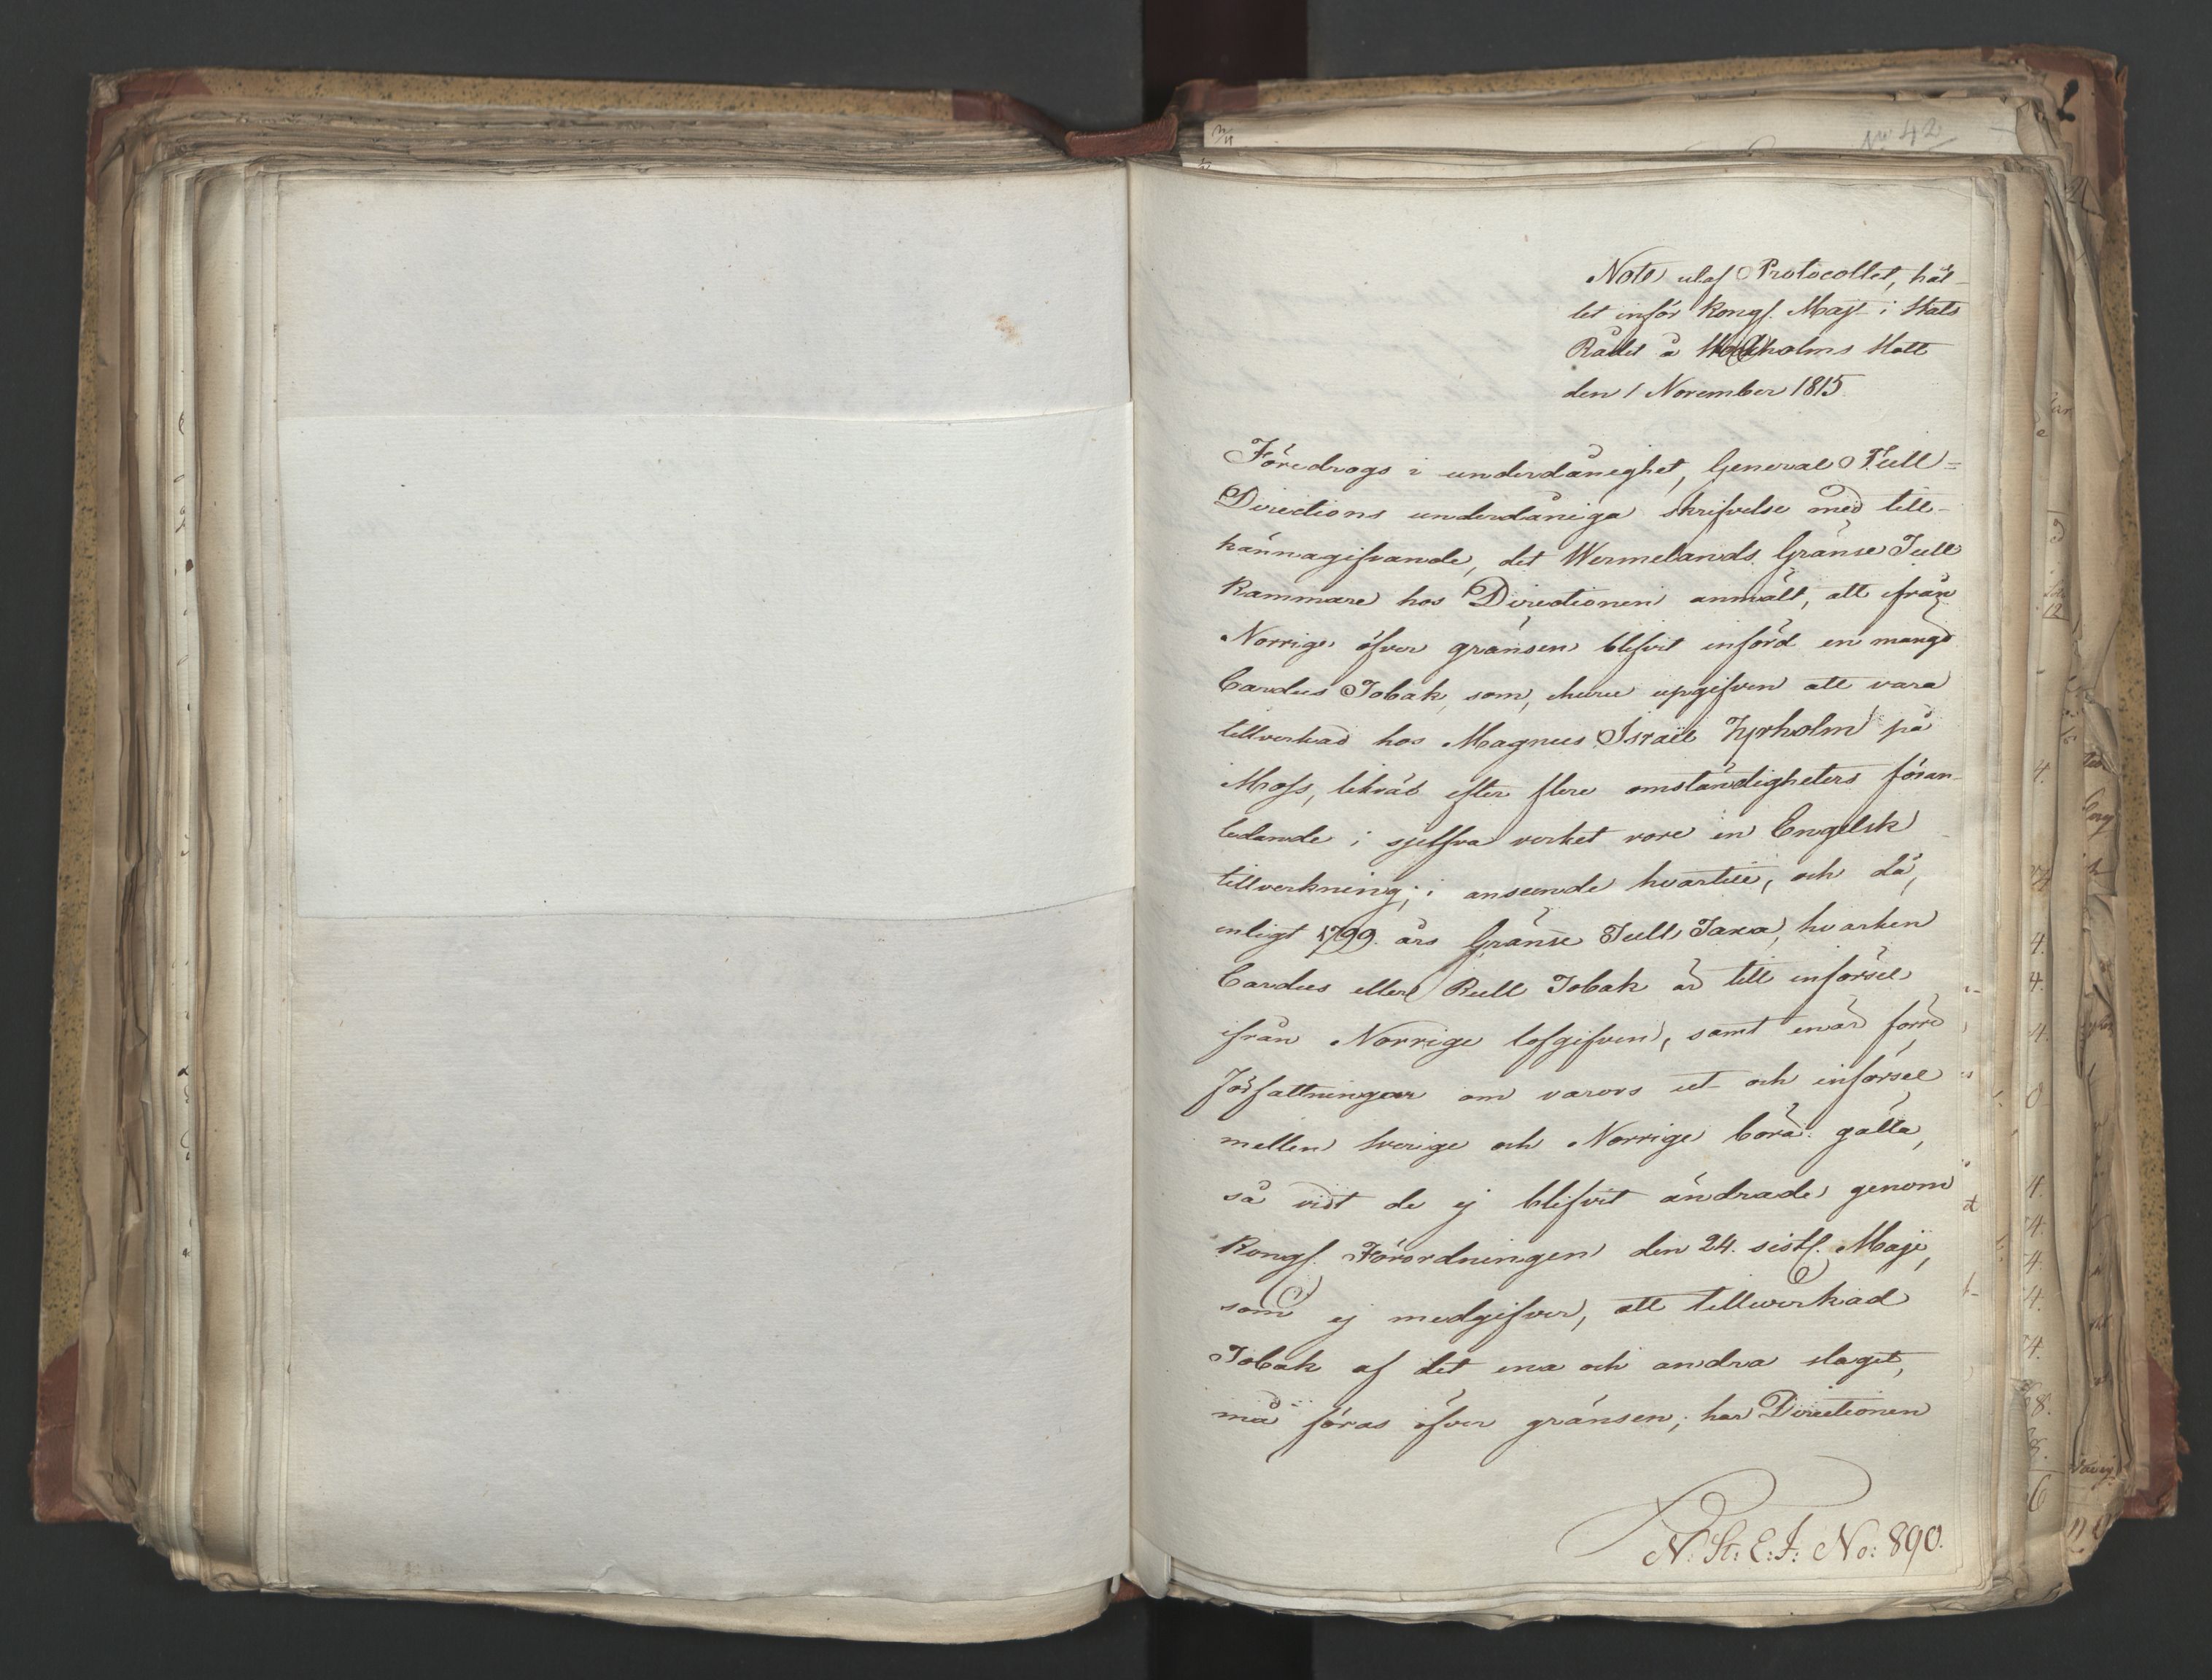 No 42
Note utaf Protocollet, hål-
let inför Kongl. Majt i Stats
Rådet å Stockholms Slott
den 1 November 1815.
Föredrogs i underdånighet, General Tull-
Directions underdåniga skrifvelse med till-
kännagifvande, det Wermelands Gränse Tull
Kammare hos Directionen anmält, att ifrån
Norrige öfver gränsen blifvit införd en mängd
Cardus Tobak, som, ehuru upgifven att vara
tillverkad hos Magnus Israël Fyrholm på
Moss, likväl efter flere omständigheters föran-
ledande i sjelfva verket vore en Engelsk
tillverkning; i anseende hvartill, och då,
enligt 1799. års Gränse Tull Taxa, hvarken
Cardus eller Rull Tobak är till införsel
ifrån Norrige lofgifven, samt enär förre
författningar om varors ut- och införsel
mellen Sverige och Norrige böra gälla,
så vidt de ej blifvit ändrade genom
Kongl. Förordningen den 24. sistl. Maji,
som ej medgifver, att tillverkad
Tobak af det ena och andra slaget,
må föras öfver gränsen; har Directionen
N. St: E: I: No: 890.